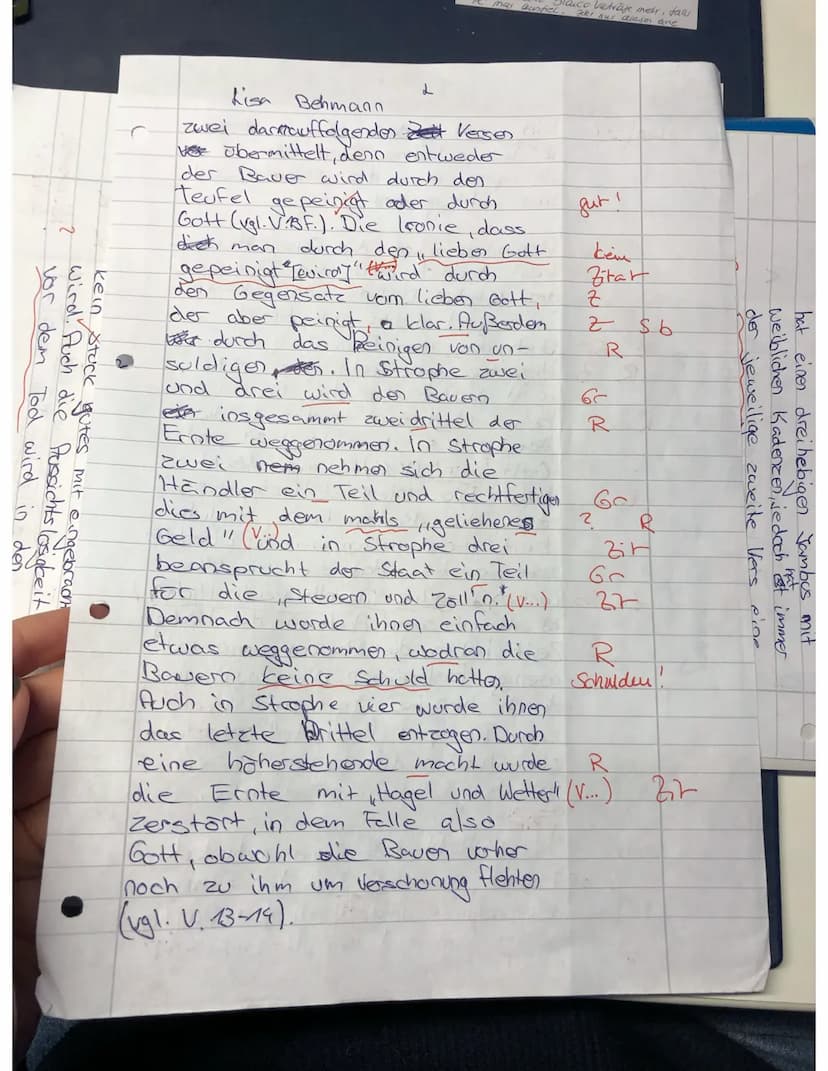 Lisa Behmann
2
zwei darrauffolgenden Versen
übermittelt, denn entweder
der Bauer wird durch den
Teufel gepeinigt oder durch
gut!
Gott (vgl. V.18f.). Die Ironie, dass
man durch den „lieben Gott
kein
gepeinigt [wird]" wird durch
Zitat
den Gegensatz vom lieben Gott,
Z
der aber peinigt, klar. Außerdem
Z Sb
durch das Peinigen von un-
R
suldigen. In Strophe zwei
und drei wird den Bauern
Gr
insgesammt zwei drittel der
R
Ernte weggenommen. In Strophe
zwei nehmen sich die
Händler ein Teil und rechtfertigen
Gr
dies mit dem mahls „geliehenes
? R
Geld" (V...) und in Strophe drei
Zit
beansprucht der Staat ein Teil
Gr
für die „Steuern und Zoll'n." (V...)
Zit
Demnach wurde ihnen einfach
etwas weggenommen, wodran die
R
Bauern keine Schuld hatten.
Schulden!
Auch in Strophe vier wurde ihnen
das letzte Drittel entzogen. Durch
eine höherstehende macht wurde
R
die Ernte mit „Hagel und Wetter" (V...)
Zit
zerstört, in dem Falle also
Gott, obwohl die Bauen vorher
noch zu ihm um Verschonung flehten
(vgl. V. 13-14).
hat einen dreihebigen Jambus mit
weiblichen Kadenzen, jedoch hat immer
der jeweilige zweite Vers eine
kein Stück gutes mit eingebracht
wird. Auch die Aussichtslosigkeit
vor dem Tod wird in den
?